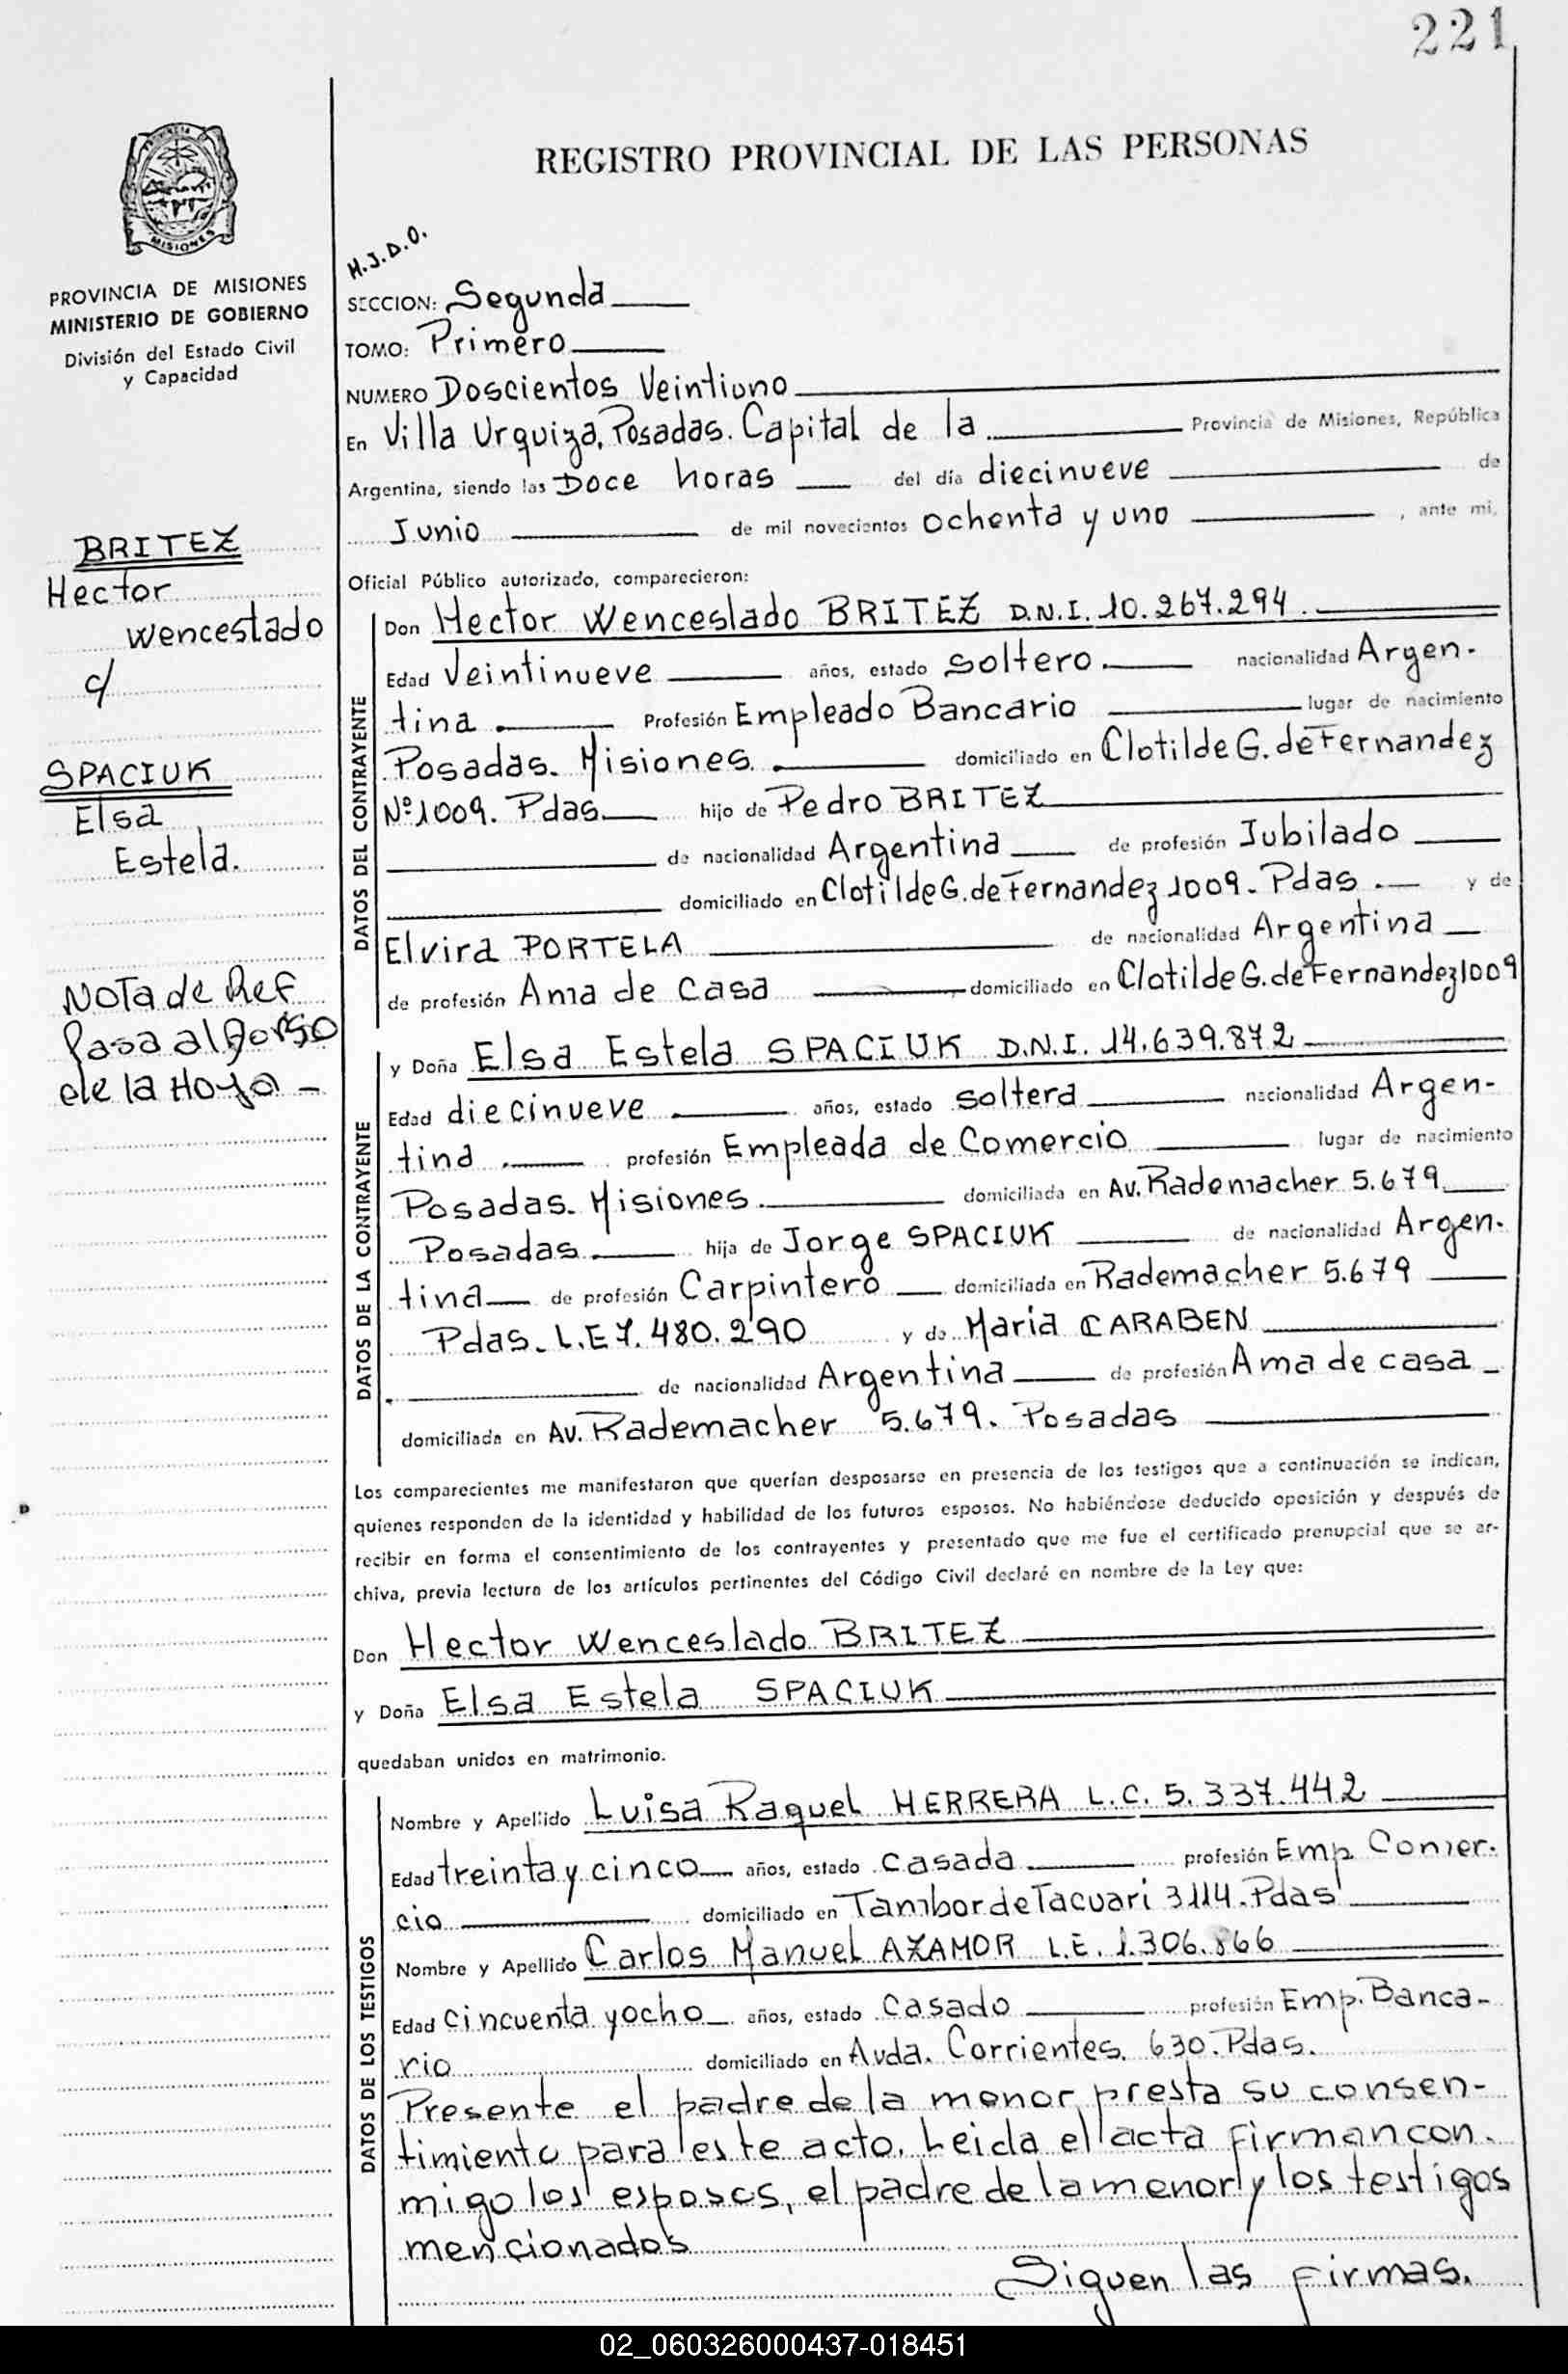 221
REGISTRO PROVINCIAL DE LAS PERSONAS
MISIONES
PROVINCIA DE MISIONES
MINISTERIO DE GOBIERNO
División del Estado Civil
y Capacidad
BRITEZ
Hector
Wenceslado
c/
SPACIUK
Elsa
Estela.
Nota de Ref
Pasa al Dorso
de la Hoja -
M.J.D.O.
SECCION: Segunda
TOMO: Primero
NUMERO Doscientos Veintiuno
En Villa Urquiza, Posadas. Capital de la Provincia de Misiones, República
Argentina, siendo las Doce horas del día diecinueve de
Junio de mil novecientos ochenta y uno , ante mi,
Oficial Público autorizado, comparecieron:
DATOS DEL CONTRAYENTE
Don Hector Wenceslado BRITEZ D.N.I. 10.267.294.
Edad Veintinueve años, estado soltero. nacionalidad Argen-
tina. Profesión Empleado Bancario lugar de nacimiento
Posadas. Misiones. domiciliado en Clotilde G. de Fernandez
Nº 1009. Pdas. hijo de Pedro BRITEZ
de nacionalidad Argentina de profesión Jubilado
domiciliado en Clotilde G. de Fernandez 1009. Pdas. y de
Elvira PORTELA de nacionalidad Argentina
de profesión Ama de casa domiciliado en Clotilde G. de Fernandez 1009
DATOS DE LA CONTRAYENTE
y Doña Elsa Estela SPACIUK D.N.I. 14.639.872
Edad diecinueve años, estado soltera nacionalidad Argen-
tina . profesión Empleada de Comercio lugar de nacimiento
Posadas. Misiones. domiciliada en Av. Rademacher 5.679
Posadas. hija de Jorge SPACIUK de nacionalidad Argen-
tina de profesión Carpintero domiciliada en Rademacher 5.679
Pdas. L.E 7.480.290 y de Maria CARABEN
de nacionalidad Argentina de profesión Ama de casa
domiciliada en Av. Rademacher 5.679. Posadas
Los comparecientes me manifestaron que querían desposarse en presencia de los testigos que a continuación se indican,
quienes responden de la identidad y habilidad de los futuros esposos. No habiéndose deducido oposición y después de
recibir en forma el consentimiento de los contrayentes y presentado que me fue el certificado prenupcial que se ar-
chiva, previa lectura de los artículos pertinentes del Código Civil declaré en nombre de la Ley que:
Don Hector Wenceslado BRITEZ
y Doña Elsa Estela SPACIUK
quedaban unidos en matrimonio.
DATOS DE LOS TESTIGOS
Nombre y Apellido Luisa Raquel HERRERA L.C. 5.337.442
Edad treinta y cinco años, estado Casada profesión Emp. Comer-
cio domiciliado en Tambor de Tacuari 3114. Pdas
Nombre y Apellido Carlos Manuel AZAMOR L.E. 1.306.866
Edad Cincuenta y ocho años, estado Casado profesión Emp. Banca-
rio domiciliado en Avda. Corrientes. 630. Pdas.
Presente el padre de la menor, presta su consen-
timiento para este acto. Leida el acta firman con-
migo los esposos, el padre de la menor y los testigos
mencionados
Siguen las firmas.
02_060326000437-018451